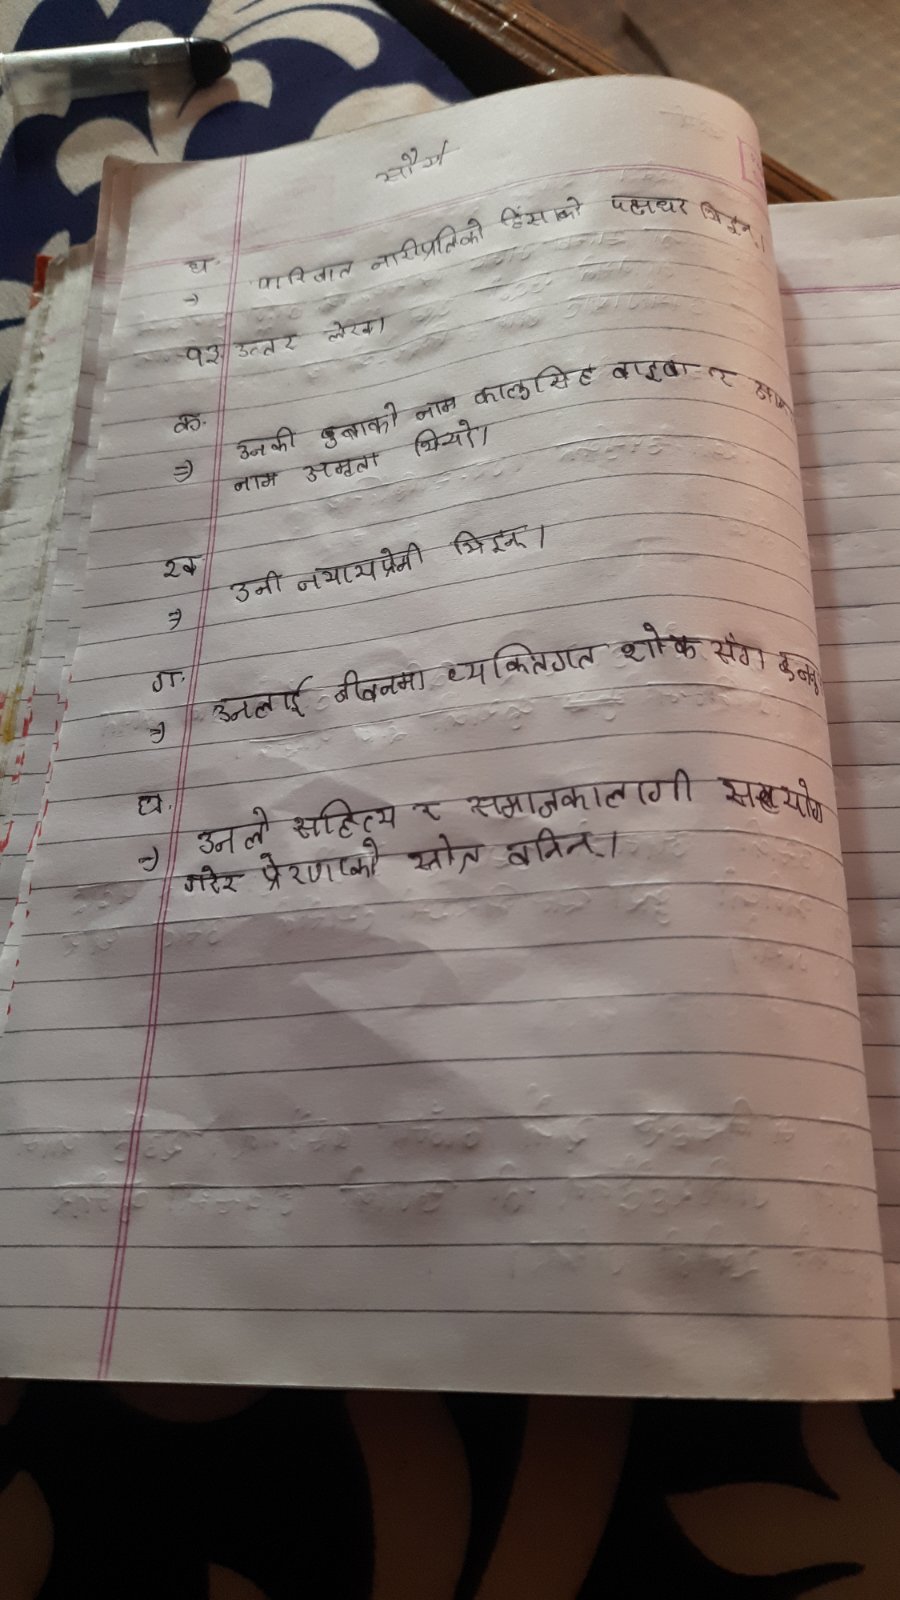 सौर्य
घ.
⇒ पारिजात नारीप्रतिको हिंसाको पक्षधर थिइन्।
१३ उत्तर लेख।
क.
⇒ उनकी बुबाको नाम कालुसिंह वाइबा र
नाम अमृता थियो।
ख
⇒ उनी नयायप्रेमी थिइन्।
ग.
⇒ उनलाई जीवनमा व्यक्तिगत शोक संग
घ.
⇒ उनले सहित्य र समाजकालागी सहयोग
गरेर प्रेरणाको स्रोत बनिन्।